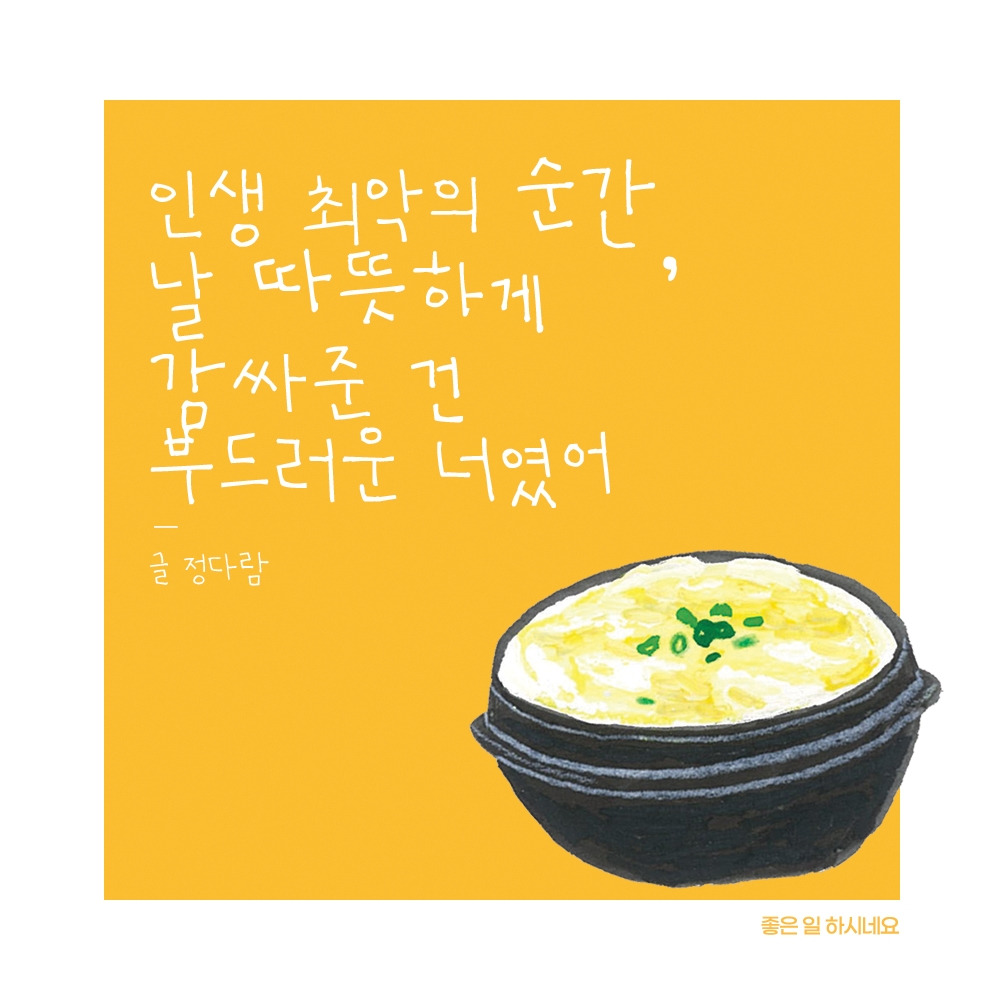 인생 최악의 순간,
날 따뜻하게
감싸준 건
부드러운 너였어
글 정다람
좋은 일 하시네요